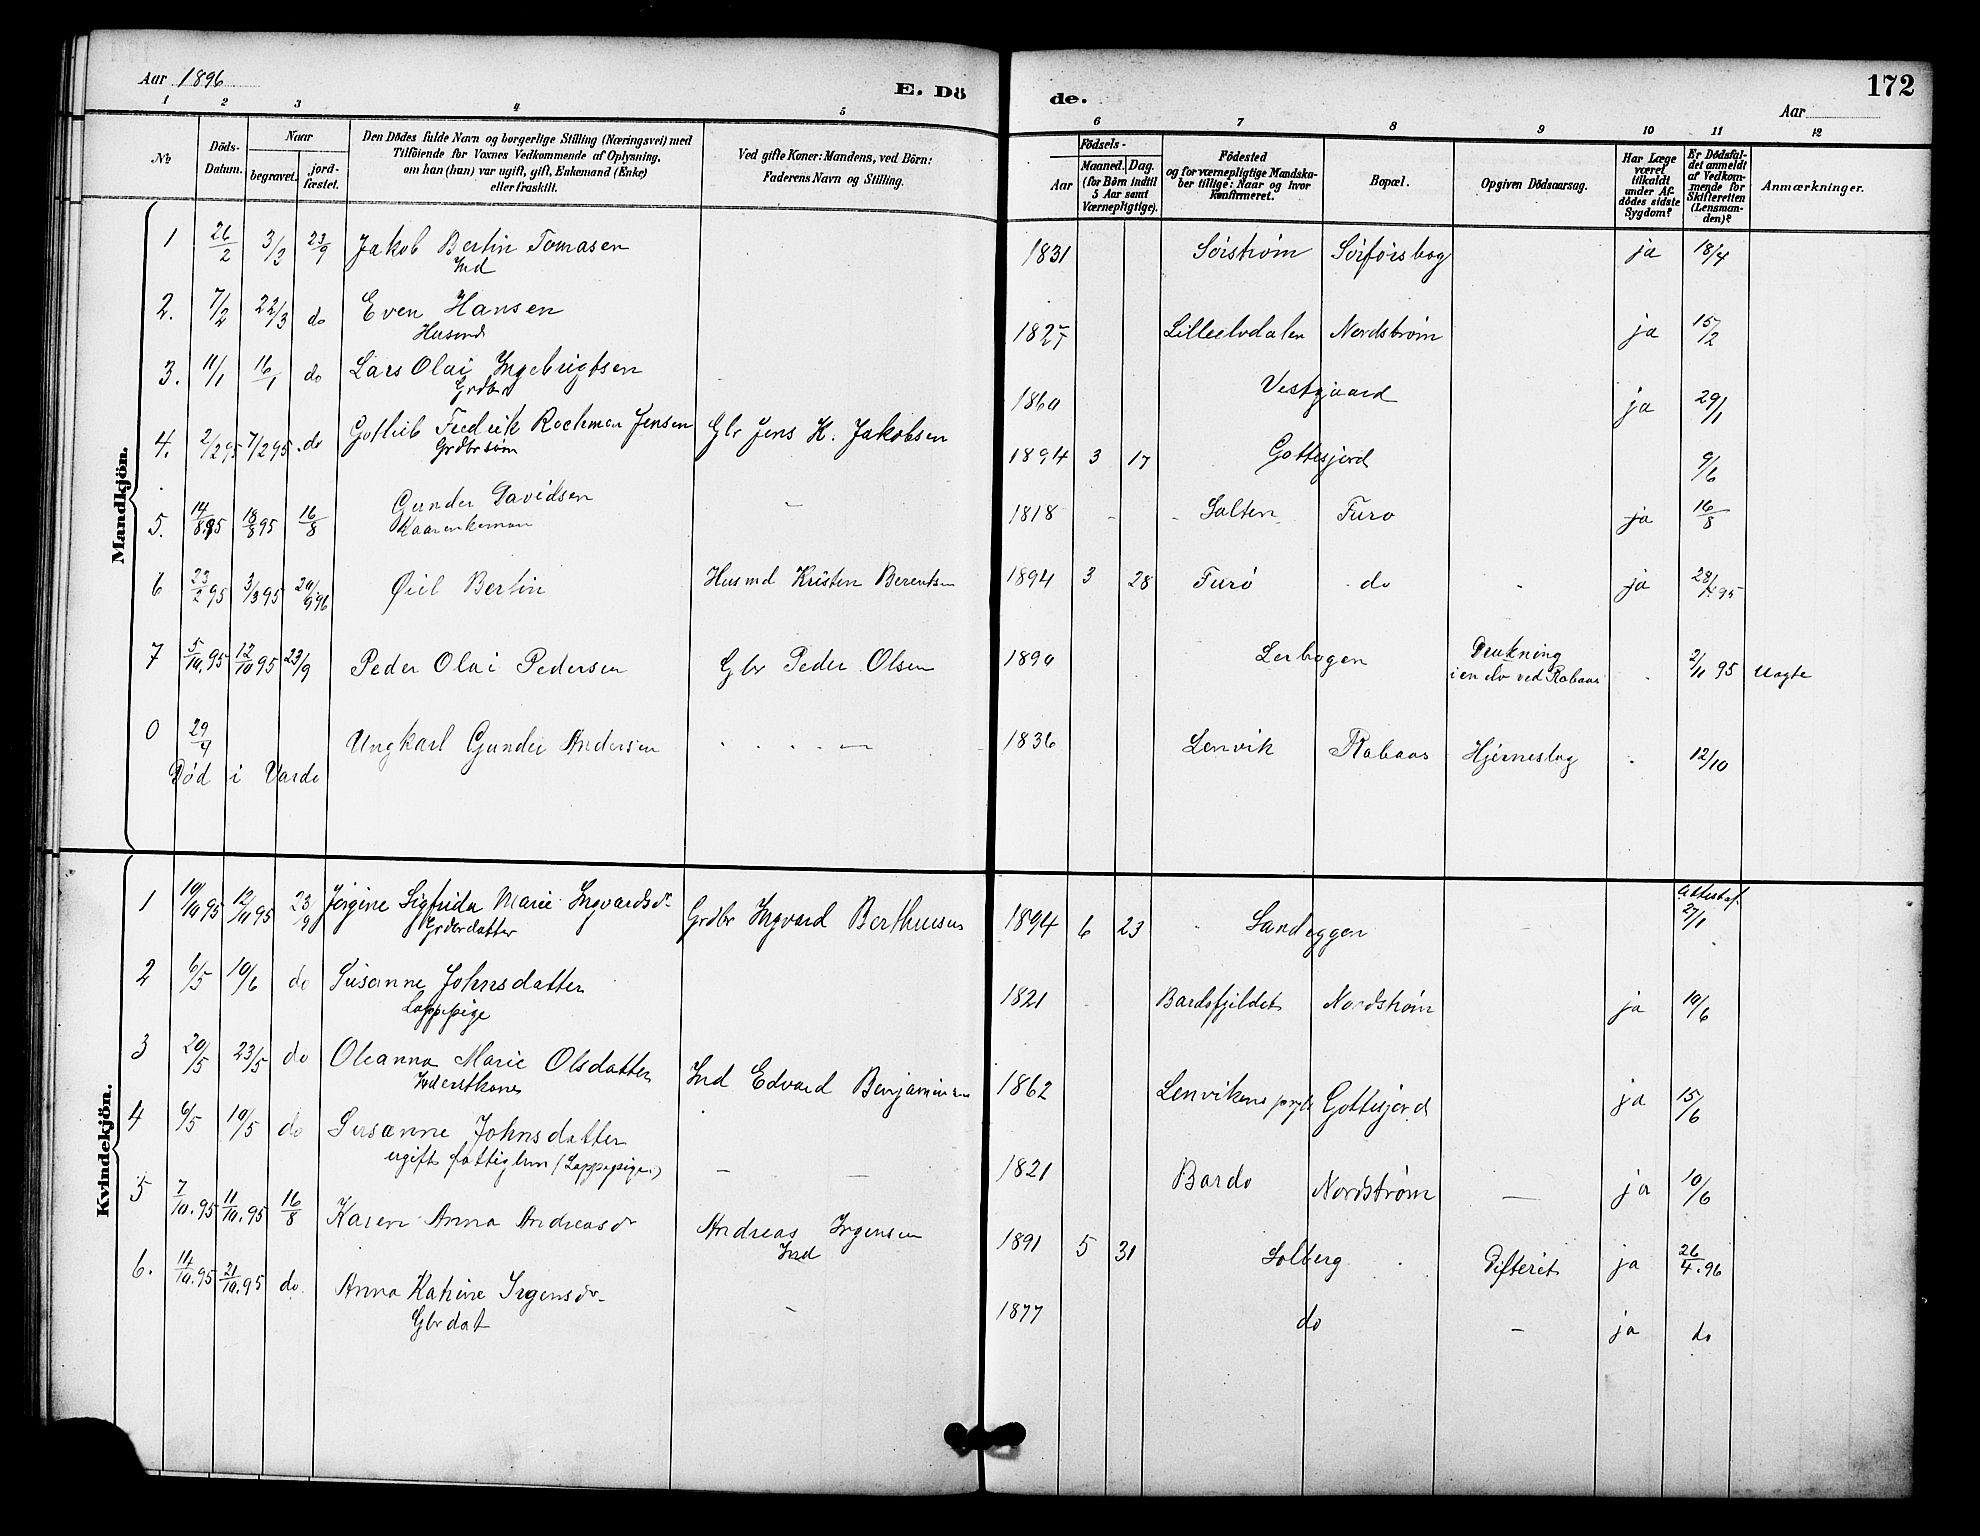 Aar 1896
E. Dö
de.
172
Aar
1 2 3 4 5 6 7 8 9 10 11 12
No
Döds-Datum.
Naar
begravet.
jord-fæstet.
Den Dödes fulde Navn og borgerlige Stilling (Næringsvei) med
Tilföiende for Voxnes Vedkommende af Oplysning,
om han (hun) var ugift, gift, Enkemand (Enke)
eller fraskilt.
Ved gifte Koner: Mandens, ved Börn:
Faderens Navn og Stilling.
Födsels-
Aar
Maaned. Dag.
(for Börn indtil
5 Aar samt
Værnepligtige).
Födested
og for værnepligtige Mandska-
ber tillige: Naar og hvor
konfirmeret.
Bopæl.
Opgiven Dödsaarsag.
Har Læge
været
tilkaldt
under Af-
dödes sidste
Sygdom?
Er Dödsfal-
det anmeldt
af Vedkom-
mende for
Skifteretten
(Lensman-
den)?
Anmærkninger.
Mandkjön.
1 26/2 3/3 23/9 Jakob Bertin Tomasen 1831 Sörström ja 18/4
Ind
2. 7/2 22/3 do Even Hansen 1827 Lilleelvdalen Nordström ja 15/2
Husmd
3. 11/1 16/1 do Lars Olai Ingebrigtsen 1860 Vestgaard ja 29/1
Grdbr
4. 2/2 95 7/2 95 do Gotlieb Fredrik Jensen Gbr Jens K. Jakobsen 1894 3 17 Gottesjord 9/6
Grdbrsøn
5. 14/8 95 18/8 95 16/8 Gunder Davidsen - 1818 Salten Furo ja 16/8
6 23/2 95 3/3 95 Bertin Husmd Kristen Berentsen 1894 3 28 Furö do ja 95
7 5/10 95 12/10 95 23/9 Peder Olai Pedersen Gbr Peder Olsen 1890 Lerbogen Drukning 2/11 95 Uagte
i en elv ved Rabaas
0 29/4 Ungkarl Gunder Andersen 1836 Lenvik Rabaas Hjerneslag 12/10
Død i Vardo
Kvindekjön.
1 10/11 95 12/11 95 23/9 Jörgine Sigfrida Marie Ingvardsdr Grdbr Ingvard Bertheusen 1894 6 23 Sandeggen Attest af 27/1
Grdbrdatter
2 6/5 10/6 do Susanne Johnsdatter 1821 Bardofjeldet Nordström ja 10/6
Lappepige
3 20/5 23/5 do Oleanna Marie Olsdatter Ind Edvard Benjaminsen 1862 Lenvikens prgld Gottesjord ja 15/6
Inderstkone
4 6/5 10/5 do Susanne Johnsdatter - - 1821 Bardo Nordström - ja 10/6
ugift fattiglem (Lappepige)
5 7/10.95 11/10.95 16/8 Karen Anna Andreasdr Andreas Irgensen 1891 5 31 Solberg Difterit ja 26/4.96
Ind
6. 14/10.95 21/10.95 do. Anna Katrine Irgensdr - 1877 do - ja do
Gbrdat